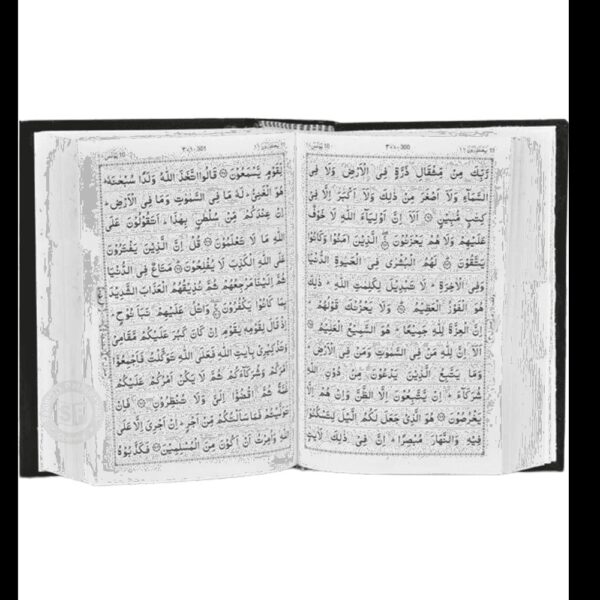 300
رَّبِّكَ مِنْ مِّثْقَالِ ذَرَّةٍ فِى الْاَرْضِ وَلَا فِى
السَّمَآءِ وَلَآ اَصْغَرَ مِنْ ذٰلِكَ وَلَآ اَكْبَرَ اِلَّا فِىْ
كِتٰبٍ مُّبِيْنٍ اَلَآ اِنَّ اَوْلِيَآءَ اللّٰهِ لَا خَوْفٌ
عَلَيْهِمْ وَلَا هُمْ يَحْزَنُوْنَ الَّذِيْنَ اٰمَنُوْا وَكَانُوْا
يَتَّقُوْنَ لَهُمُ الْبُشْرٰى فِى الْحَيٰوةِ الدُّنْيَا
وَفِى الْاٰخِرَةِ لَا تَبْدِيْلَ لِكَلِمٰتِ اللّٰهِ ذٰلِكَ
هُوَ الْفَوْزُ الْعَظِيْمُ وَلَا يَحْزُنْكَ قَوْلُهُمْ
اِنَّ الْعِزَّةَ لِلّٰهِ جَمِيْعًا هُوَ السَّمِيْعُ الْعَلِيْمُ
اَلَآ اِنَّ لِلّٰهِ مَنْ فِى السَّمٰوٰتِ وَمَنْ فِى الْاَرْضِ
وَمَا يَتَّبِعُ الَّذِيْنَ يَدْعُوْنَ مِنْ دُوْنِ اللّٰهِ
شُرَكَآءَ اِنْ يَّتَّبِعُوْنَ اِلَّا الظَّنَّ وَاِنْ هُمْ اِلَّا
يَخْرُصُوْنَ هُوَ الَّذِىْ جَعَلَ لَكُمُ الَّيْلَ لِتَسْكُنُوْا
فِيْهِ وَالنَّهَارَ مُبْصِرًا اِنَّ فِىْ ذٰلِكَ لَاٰيٰتٍ
301
لِّقَوْمٍ يَّسْمَعُوْنَ قَالُوا اتَّخَذَ اللّٰهُ وَلَدًا سُبْحٰنَهٗ
هُوَ الْغَنِىُّ لَهٗ مَا فِى السَّمٰوٰتِ وَمَا فِى الْاَرْضِ
اِنْ عِنْدَكُمْ مِّنْ سُلْطٰنٍ بِهٰذَا اَتَقُوْلُوْنَ عَلَى
اللّٰهِ مَا لَا تَعْلَمُوْنَ قُلْ اِنَّ الَّذِيْنَ يَفْتَرُوْنَ
عَلَى اللّٰهِ الْكَذِبَ لَا يُفْلِحُوْنَ مَتَاعٌ فِى الدُّنْيَا
ثُمَّ اِلَيْنَا مَرْجِعُهُمْ ثُمَّ نُذِيْقُهُمُ الْعَذَابَ الشَّدِيْدَ
بِمَا كَانُوْا يَكْفُرُوْنَ وَاتْلُ عَلَيْهِمْ نَبَاَ نُوْحٍ
اِذْ قَالَ لِقَوْمِهٖ يٰقَوْمِ اِنْ كَانَ كَبُرَ عَلَيْكُمْ مَّقَامِىْ
وَتَذْكِيْرِىْ بِاٰيٰتِ اللّٰهِ فَعَلَى اللّٰهِ تَوَكَّلْتُ فَاَجْمِعُوْٓا
اَمْرَكُمْ وَشُرَكَآءَكُمْ ثُمَّ لَا يَكُنْ اَمْرُكُمْ عَلَيْكُمْ
غُمَّةً ثُمَّ اقْضُوْٓا اِلَىَّ وَلَا تُنْظِرُوْنِ فَاِنْ
تَوَلَّيْتُمْ فَمَا سَاَلْتُكُمْ مِّنْ اَجْرٍ اِنْ اَجْرِىَ اِلَّا عَلَى
اللّٰهِ وَاُمِرْتُ اَنْ اَكُوْنَ مِنَ الْمُسْلِمِيْنَ فَكَذَّبُوْهُ